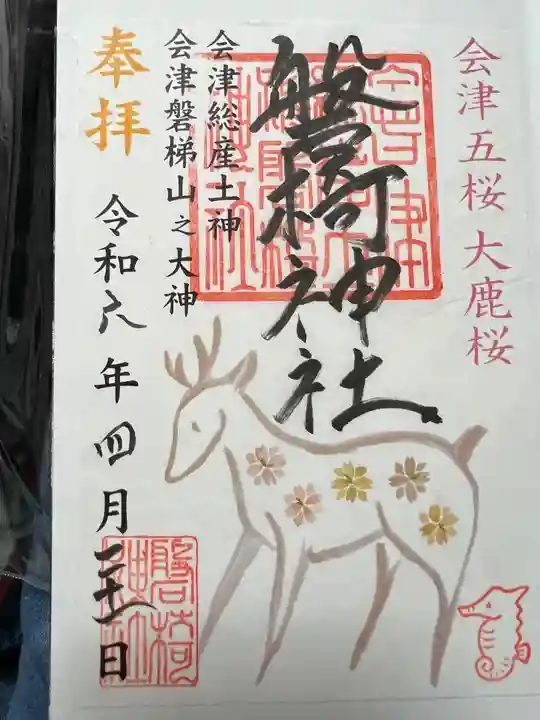 会津五桜 大鹿桜
磐椅神社
会津総産土神
会津磐梯山之大神
奉拝
令和 年四月 日
磐椅
神社